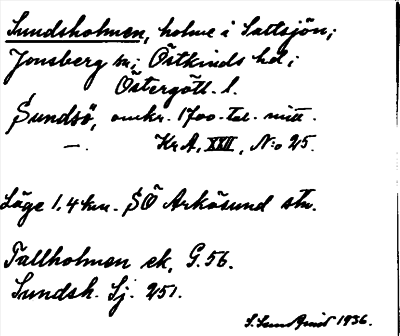 Sundsholmen, holme i Lattsjön;
Jonsberg sn; Östkinds hd;
Östergötl. l.
Sundsö, omkr. 1700-tal. mitt.
—. KrA, XXII, N:o 25.
Läge 1.4 km. SÖ Arkösund stn.
Tallholmen ek. G.56.
Sundsh. Sj. 251.
1936.